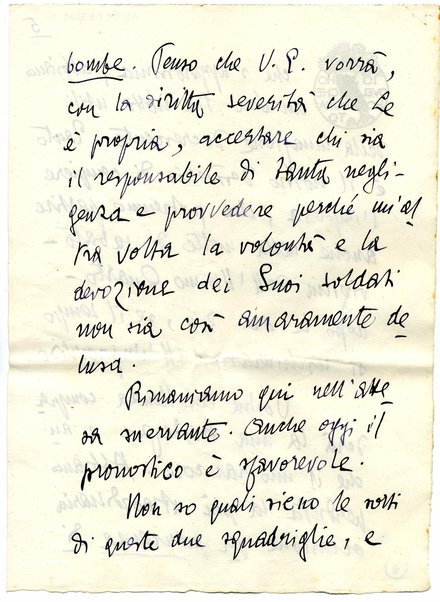 bombe. Penso che V. E. vorrà,
con la diritta severità che Le
è propria, accertare chi sia
il responsabile di tanta negli-
genza e provvedere perché un'al
tra volta la volontà e la
devozione dei Suoi soldati
non sia così amaramente de
lusa.
Rimaniamo qui nell'atte
sa snervante. Anche oggi il
pronostico è sfavorevole.
Non so quali sieno le sorti
di queste due squadriglie, e